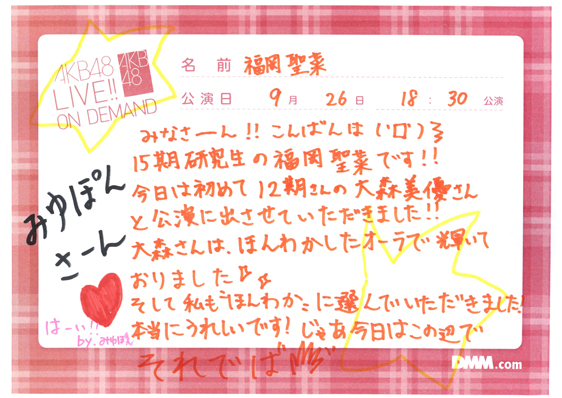 AKB48
LIVE!!
ON DEMAND
AKB
48
名前 福岡聖菜
公演日 9月 26日 18:30 公演
みなさーん!!こんばんは('ロ')
15期研究生の福岡聖菜です!!
今日は初めて12期さんの大森美優さん
と公演に出させていただきました!!
大森さんは、ほんわかしたオーラで輝いて
おりました
そして私も"ほんわか"に選んでいただきました!
本当にうれしいです!じゃあ今日はこの辺で
それでは!
みゆぽん
さーん
はーい!!
by.みゆぽん
DMM.com